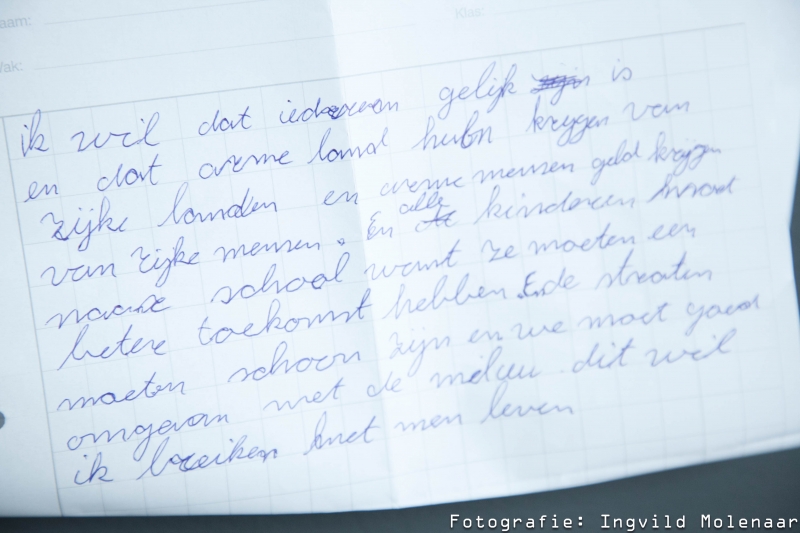 aam:
Klas:
Vak:
ik wil dat iedereen gelijk is
en dat arme land hulp krijgen van
rijke landen en arme mensen geld krijgen
van rijke mensen. En alle kinderen moet
naar school want ze moeten een
betere toekomst hebben. En de straten
moeten schoon zijn en we moet goed
omgaan met de milieu dit wil
ik breiken met men leven
Fotografie: Ingvild Molenaar